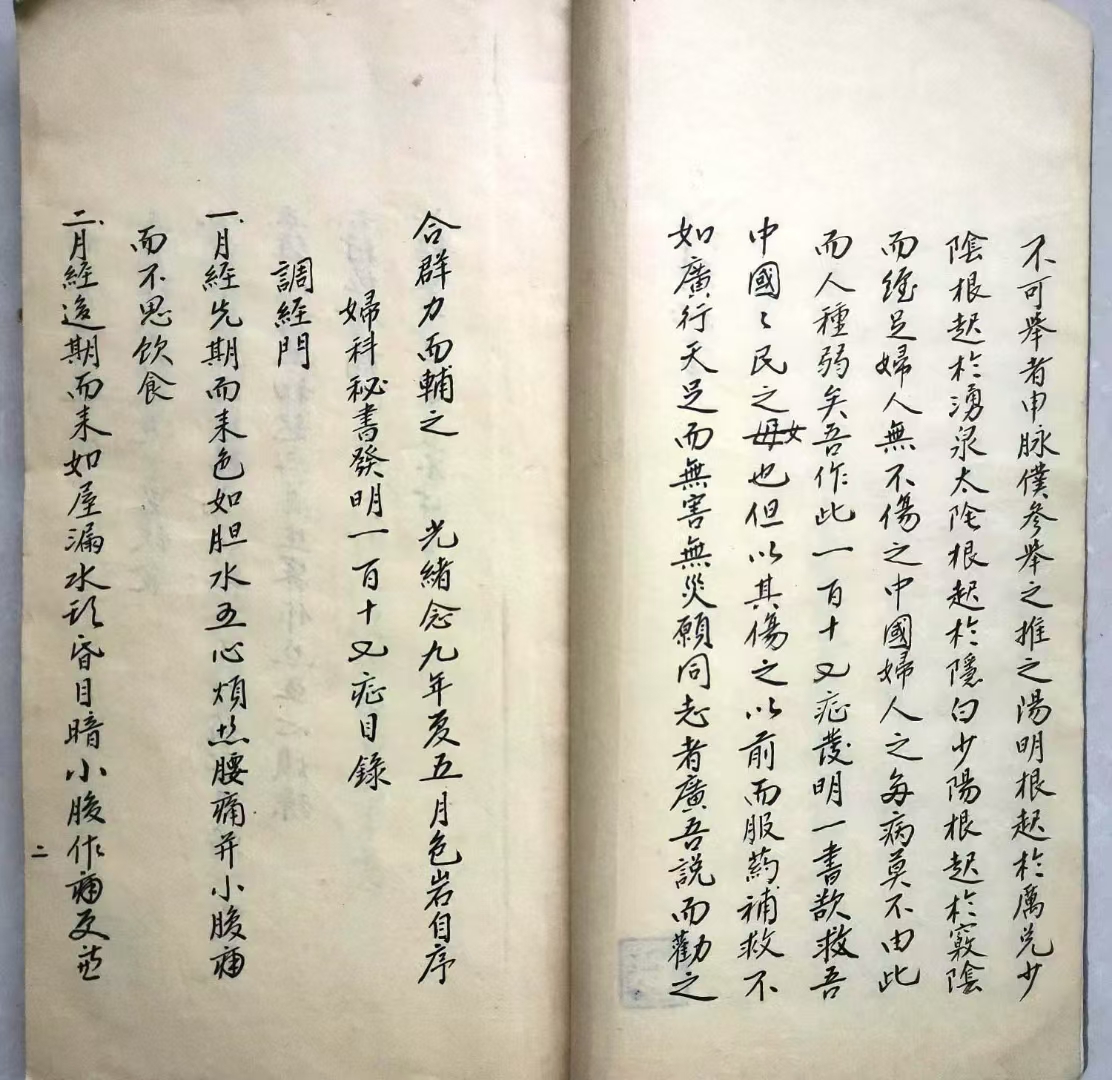 不可舉者申脉僕參舉之推之陽明根起於厲兌少
陰根起於湧泉太陰根起於隱白少陽根起於竅陰
而纏足婦人無不傷之中國婦人之每病莫不由此
而人種弱矣吾作此一百十又症發明一書欲救吾
中國〻民之母女也但以其傷之以前而服药補救不
如廣行天足而無害無災願同志者廣吾說而勸之
合群力而輔之 光緒念九年夏五月色岩自序
婦科秘書發明一百十又症目錄
調經門
一、月經先期而來色如胆水五心煩热腰痛并小腹痛
而不思飲食
二、月經遲期而來如屋漏水頭昏目暗小腹作痛更
二